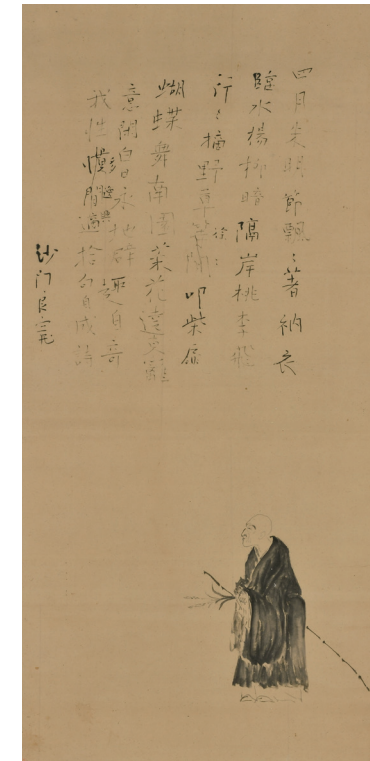 四月 時節飄〻著衲衣
臨水楊柳暗隔岸桃李飛
行〻摘野草 徐〻叩柴扉
蝴蝶舞南園菜花遶東籬
意閑白日永地碑趣自奇
我性 適拾句自成詩
沙门良寛